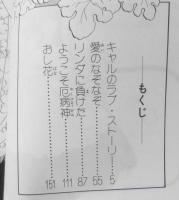 もくじ
キャルのラブ・ストーリー…5
愛のなぞなぞ…55
リンダに負けた…87
ようこそ厄病神…111
おし花…151